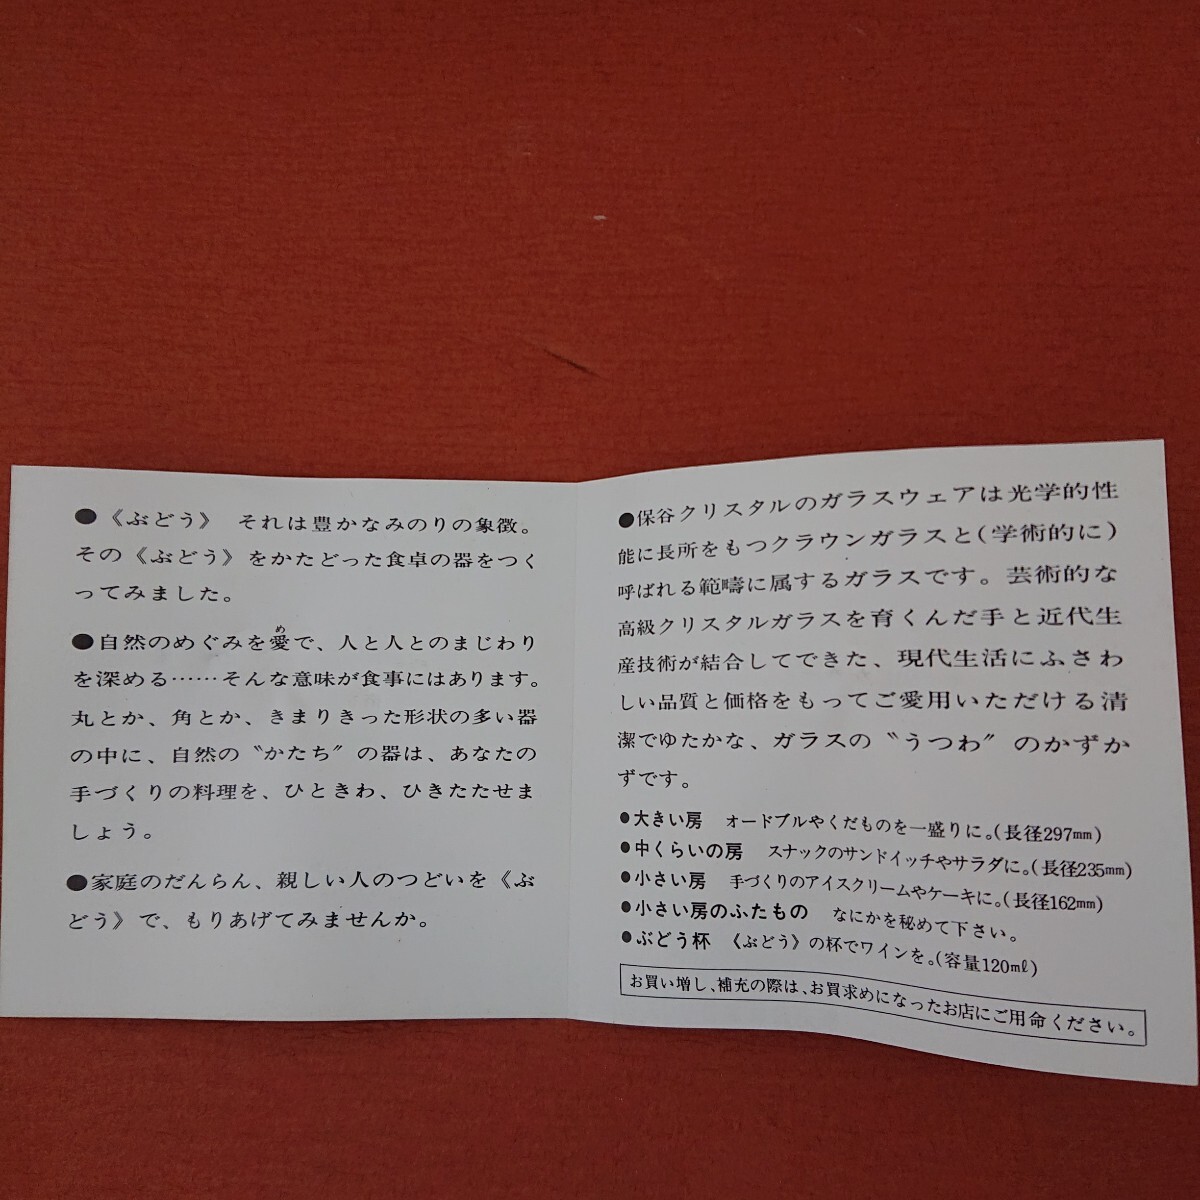 ●《ぶどう》 それは豊かなみのりの象徴。
その《ぶどう》をかたどった食卓の器をつく
ってみました。
●自然のめぐみを愛で、人と人とのまじわり
を深める……そんな意味が食事にはあります。
丸とか、角とか、きまりきった形状の多い器
の中に、自然の〝かたち〟の器は、あなたの
手づくりの料理を、ひときわ、ひきたたせま
しょう。
●家庭のだんらん、親しい人のつどいを《ぶ
どう》で、もりあげてみませんか。
●保谷クリスタルのガラスウェアは光学的性
能に長所をもつクラウンガラスと(学術的に)
呼ばれる範疇に属するガラスです。芸術的な
高級クリスタルガラスを育くんだ手と近代生
産技術が結合してできた、現代生活にふさわ
しい品質と価格をもってご愛用いただける清
潔でゆたかな、ガラスの〝うつわ〟のかずか
ずです。
●大きい房 オードブルやくだものを一盛りに。(長径297mm)
●中くらいの房 スナックのサンドイッチやサラダに。(長径235mm)
●小さい房 手づくりのアイスクリームやケーキに。(長径162mm)
●小さい房のふたもの なにかを秘めて下さい。
●ぶどう杯 《ぶどう》の杯でワインを。(容量120mℓ)
お買い増し、補充の際は、お買求めになったお店にご用命ください。